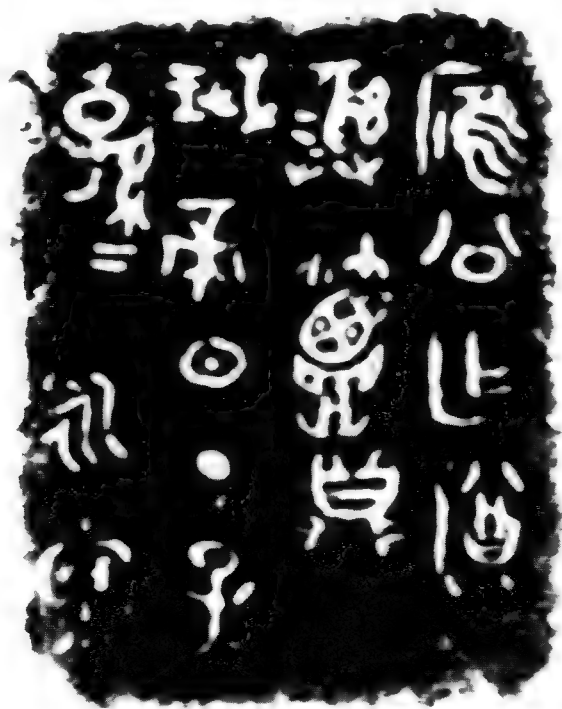 應公乍尊
彝簟鼎
珷帝日丁子
孫=永寶